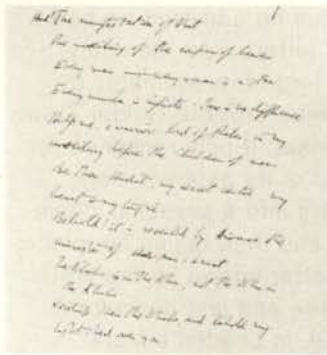 Had! The manifestation of Nuit
The unveiling of the company of heaven
Every man and every woman is a star
Every number is infinite: there is no difference
Help me, o warrior lord of Thebes, in my
unveiling before the Children of men
Be thou Hadit, my secret centre, my
heart & my tongue
Behold! it is revealed by Aiwass the
minister of Hoor-paar-kraat
The Khabs is in the Khu, not the Khu in
the Khabs
Worship then the Khabs, and behold my
light shed over you